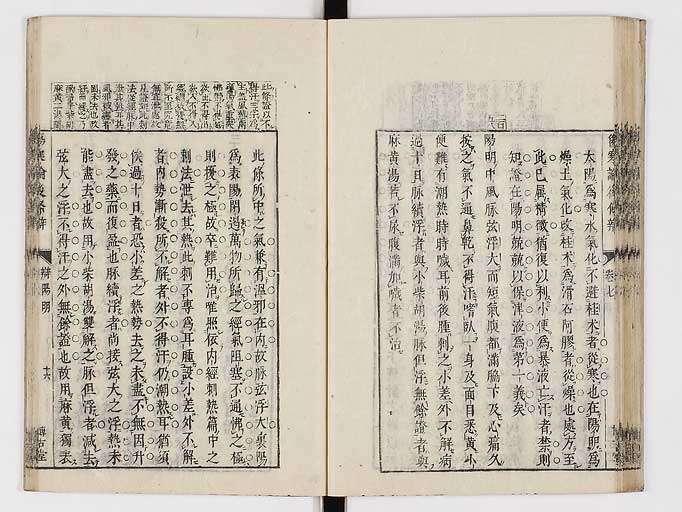 太陽爲寒水氣化不避桂朮者從寒也在陽明爲
燥土氣化改桂朮爲滑石阿膠者從燥也處方至
此已屬補微猶復以利小便爲暴液亡汗者禁則
知證在陽明兢兢以保津液爲第一義矣
陽明中風脉弦浮大而短氣腹都滿脇下及心痛久
按之氣不通鼻乾不得汗嗜臥一身及面目悉黃小
便難有潮熱時時噦耳前後腫刺之小差外不解病
過十日脉續浮者與小柴胡湯脉但浮無餘證者與
麻黃湯若不尿腹滿加噦者不治
卷七
此條所中之氣兼有溫邪在內故脉弦浮大與陽
爲表陽明過萬物所歸之經氣阻塞不通怫之極
則擾之極故卒難用治唯照依內經刺熱篇中之
刺法泄去其熱此刺不專爲耳腫設小差外不解
者內勢漸殺所不解者外不得汗仍潮熱耳猶須
俟過十日者恐小差之熱勢去之未盡不無因升
發之藥而復盈也脉續浮者尚接弦大之浮熱未
能盡去也故用小柴胡湯雙解之脉但浮者減去
弦大之浮不得汗之外無餘證也故用麻黃獨表
傷寒論後條辨
辨陽明
十六